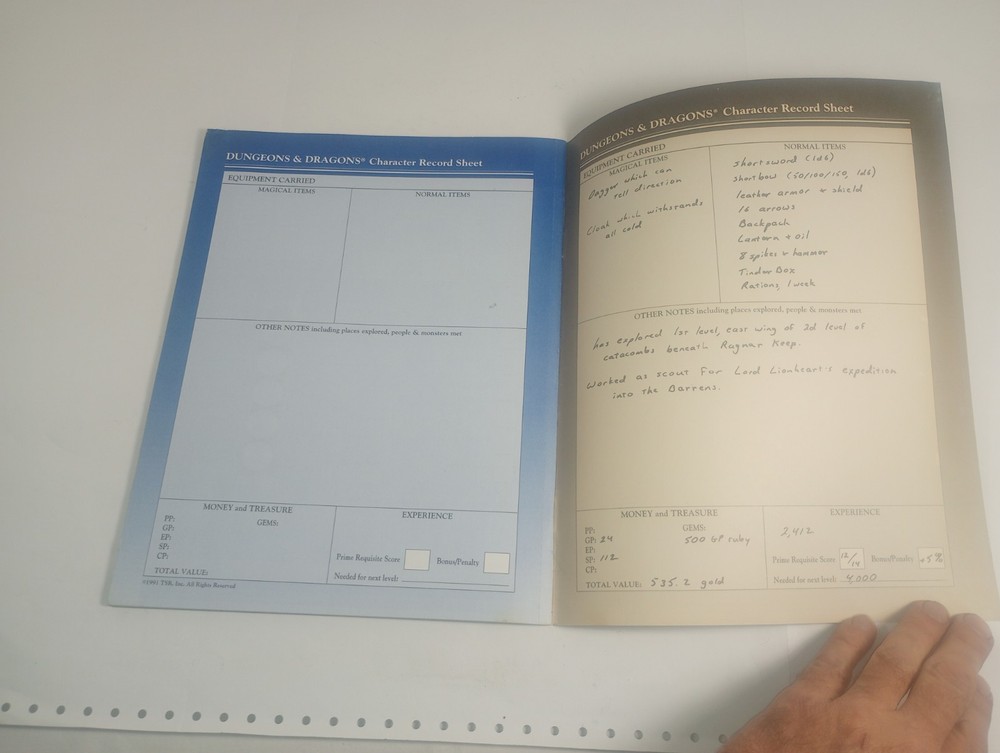 DUNGEONS & DRAGONS® Character Record Sheet
EQUIPMENT CARRIED
MAGICAL ITEMS
NORMAL ITEMS
OTHER NOTES including places explored, people & monsters met
MONEY and TREASURE
PP:
GP:
EP:
SP:
CP:
GEMS:
TOTAL VALUE:
EXPERIENCE
Prime Requisite Score
Bonus/Penalty
Needed for next level:
TSR, Inc. All Rights Reserved
DUNGEONS & DRAGONS® Character Record Sheet
EQUIPMENT CARRIED
MAGICAL ITEMS
Dagger which can
tell direction
Cloak which withstands
all cold
NORMAL ITEMS
shortsword (1d6)
shortbow (50/100/150, 1d6)
leather armor & shield
16 arrows
Backpack
Lantern + oil
8 spikes & hammer
Tinder Box
Rations, 1 week
OTHER NOTES including places explored, people & monsters met
has explored 1st level, east wing of 2d level of
catacombs beneath Ragnar Keep.
Worked as scout for Lord Lionheart's expedition
into the Barrens.
MONEY and TREASURE
PP:
GP: 24
EP:
SP: 112
CP:
GEMS:
500 GP ruby
TOTAL VALUE: 535.2 gold
EXPERIENCE
2,412
Prime Requisite Score 12/14
Bonus/Penalty +5%
Needed for next level: 4,000